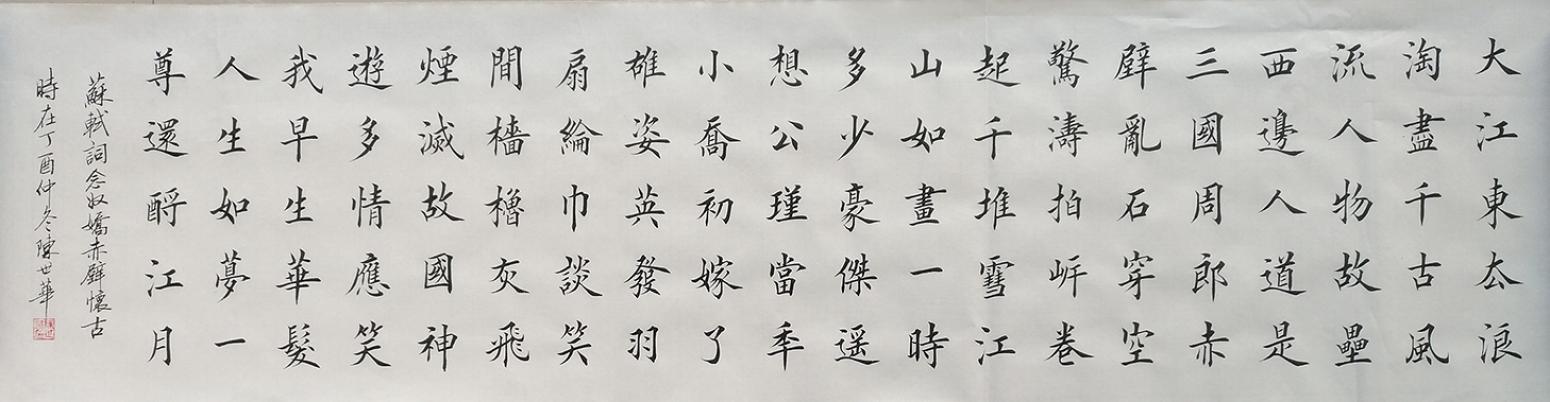 大江東去浪
淘盡千古風
流人物故壘
西邊人道是
三國周郎赤
壁亂石穿空
驚濤拍岸卷
起千堆雪江
山如畫一時
多少豪傑遥
想公瑾當年
小喬初嫁了
雄姿英發羽
扇綸巾談笑
間檣櫓灰飛
煙滅故國神
遊多情應笑
我早生華髮
人生如夢一
尊還酹江月
蘇軾詞念奴嬌赤壁懷古
時在丁酉仲冬陳世華